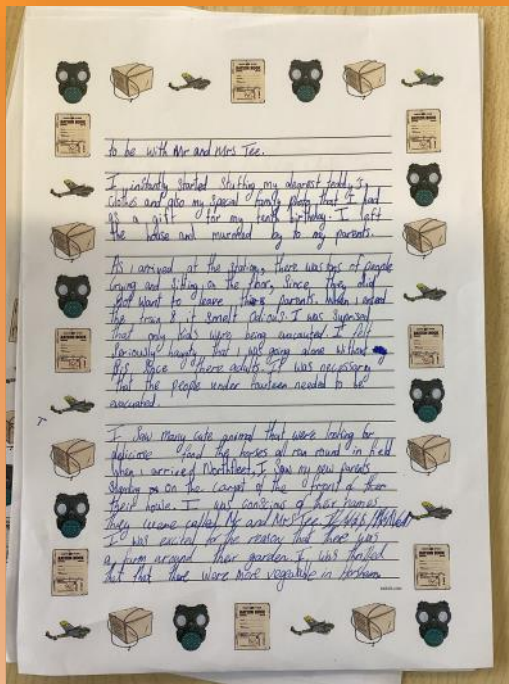 to be with Mr and Mrs Tee.
I instantly started stuffing my dearest teddy's
clothes and also my special family photo that I had
as a gift for my tenth birthday. I left
the house and by to my parents.
As i arrived at the station, there was tons of people
crying and sitting on the floor, since they did
not want to leave parents. When i entered
the train it smelt odious. I was suprised
that only kids were being evacuated. I felt
seriously that I was going alone without
there adults. It was necissary
that the people under fourteen needed to be
evacuated.
I saw many cute animal that were looking for
food the horses all ran round in field
when i arrived Northfleet. I saw my new parents
standing on the carpet of the front of their
their house. I was of their names
they were called Mr and Mrs Tee
I was excited for the reason that there was
a farm around their garden. I was thrilled
that there were more vegetable in Horsham
RATION BOOK